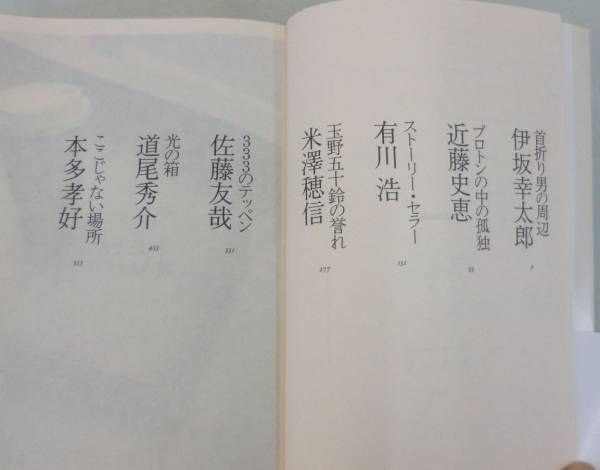 首折り男の周辺
伊坂幸太郎
プロトンの中の孤独
近藤史恵
ストーリー・セラー
有川 浩
玉野五十鈴の誉れ
米澤穂信
277
333のテッペン
佐藤友哉
光の箱
道尾秀介
453
ここじゃない場所
本多孝好